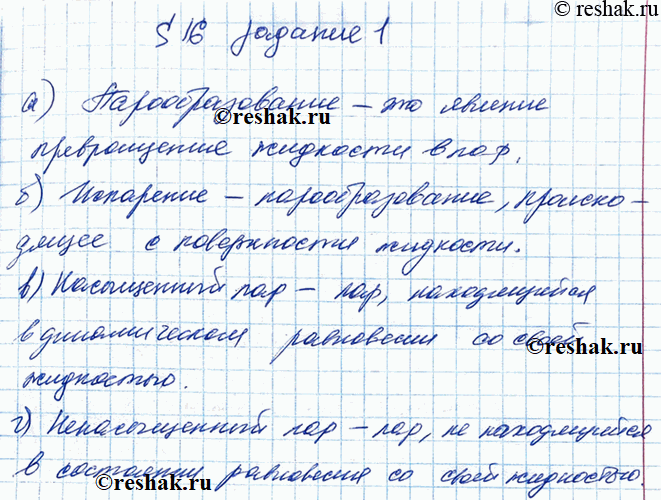 © reshak.ru
§ 16 задание 1
а) Парообразование – это явление
© reshak.ru
превращение жидкости в пар.
б) Испарение – парообразование, происхо-
дящее с поверхности жидкости.
в) Насыщенный пар – пар, находящийся
в динамическом равновесии со своей
© reshak.ru
жидкостью.
г) Ненасыщенный пар – пар, не находящийся
в состоянии равновесия со своей жидкостью.
© reshak.ru